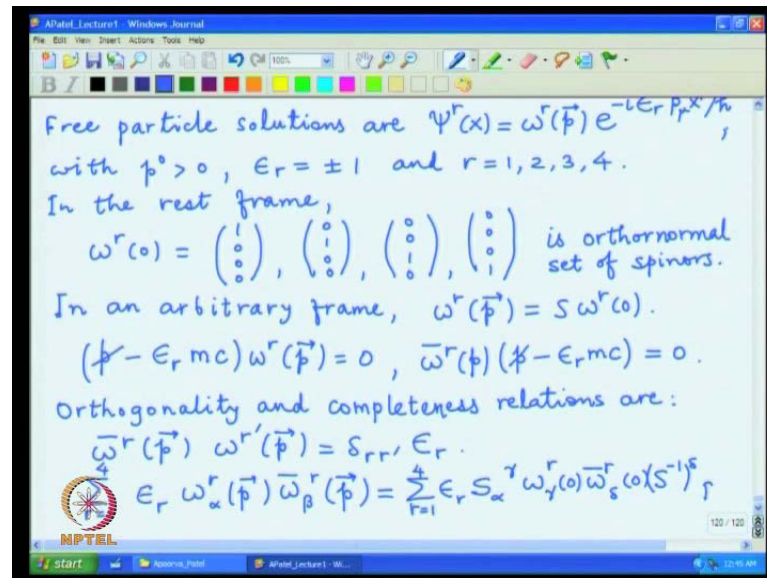 APatel_Lecture1 - Windows Journal
File Edit View Insert Actions Tools Help
100%
B I
Free particle solutions are ψ^r(x) = ω^r(p⃗) e^{-iϵ_r p_μ x^μ/ħ},
with p⁰ > 0, ϵ_r = ±1 and r = 1, 2, 3, 4.
In the rest frame,
ω^r(0) = (1 0 0 0), (0 1 0 0), (0 0 1 0), (0 0 0 1) is orthornormal set of spinors.
In an arbitrary frame, ω^r(p⃗) = S ω^r(0).
(p̸ - ϵ_r mc) ω^r(p⃗) = 0, ω̄^r(p) (p̸ - ϵ_r mc) = 0.
Orthogonality and completeness relations are:
ω̄^r(p⃗) ω^r'(p⃗) = δ_rr' ϵ_r.
4 ϵ_r ω^r_α(p⃗) ω̄^r_β(p⃗) = Σ_{r=1}^4 ϵ_r S_α^γ ω^r_γ(0) ω̄^r_δ(0)(S^{-1})^δ
NPTEL
120 / 120
start
Apoorva_Patel
APatel_Lecture1 - Wi...
12:45 AM